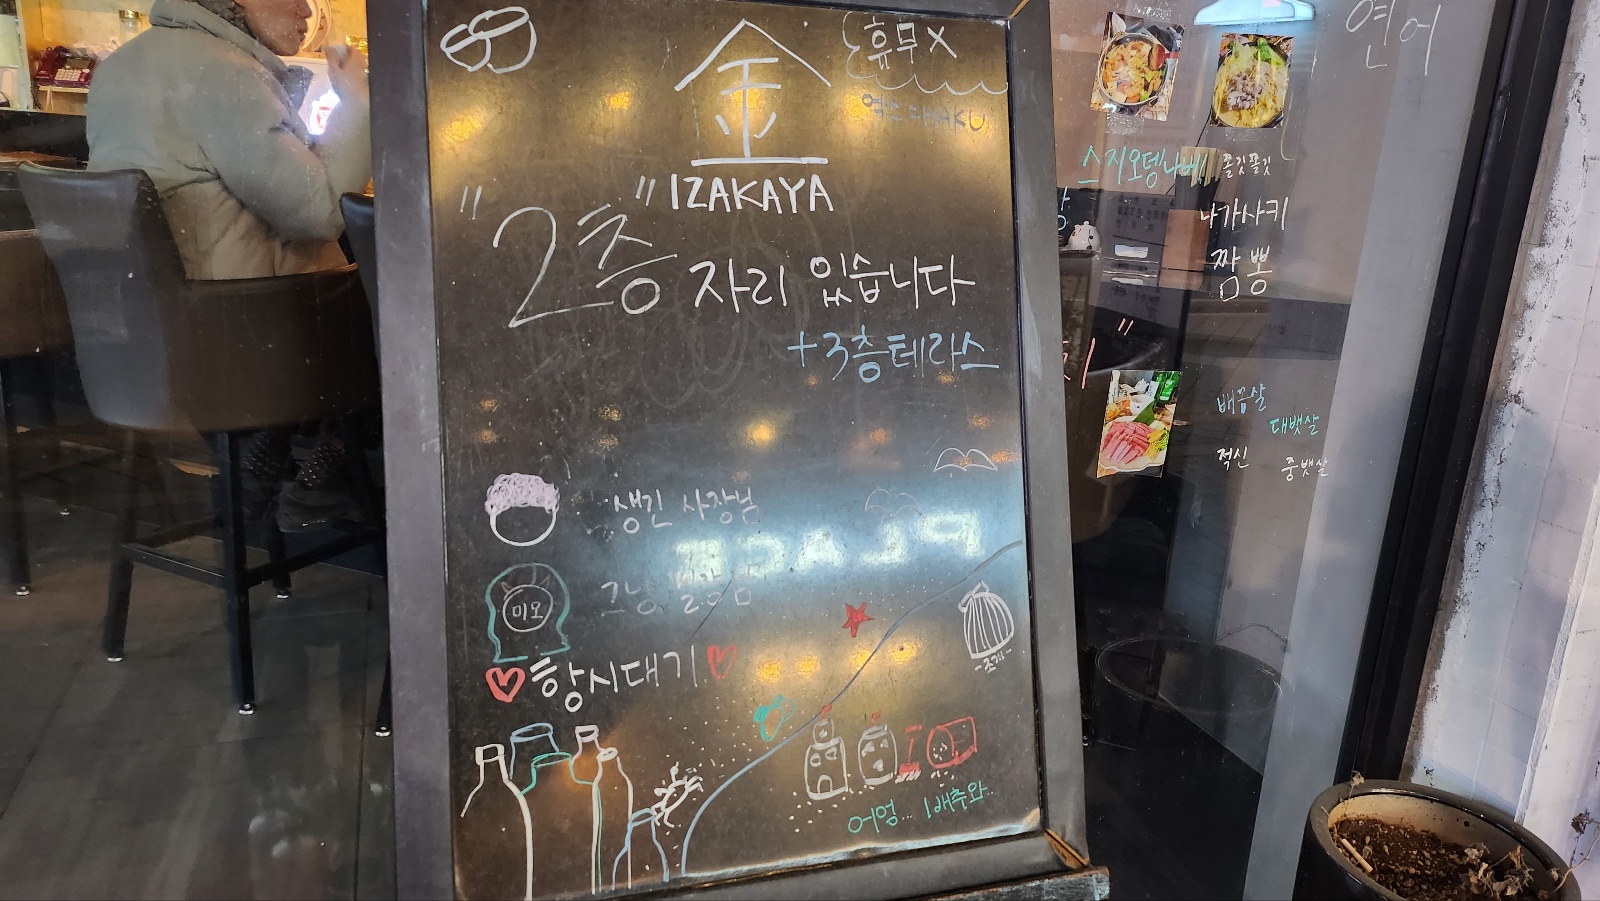 金
휴무X
IZAKAYA
"2층" 자리 있습니다
+3층테라스
생긴 사장님
그냥
미오
♡항시대기♡
-조개-
어엉... 1배추와
연어
스지오뎅나베!
쫄깃쫄깃
나가사키
짬뽕
배꼽살
대뱃살
적신
중뱃살